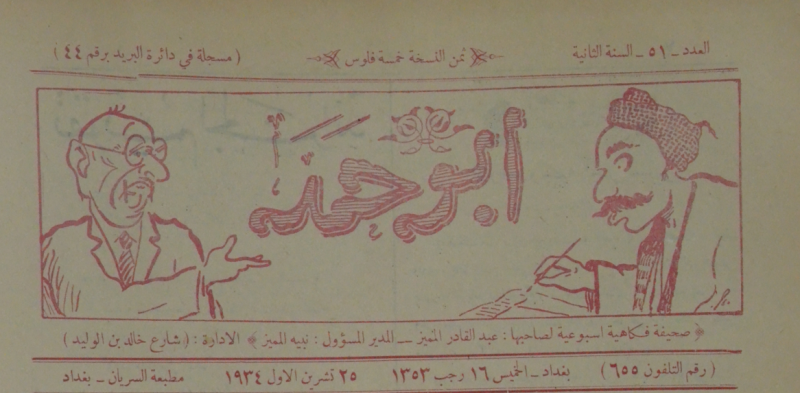 العدد - ٥١ - السنة الثانية ثمن النسخة خمسة فلوس ( مسجلة في دائرة البريد برقم ٤٤ )
أبو حمد
صحيفة فكاهية اسبوعية لصاحبها : عبد القادر المميز — المدير المسؤول : نبيه المميز الادارة : ( شارع خالد بن الوليد )
( رقم التلفون ٦٥٥ ) بغداد - الخميس ١٦ رجب ١٣٥٣ ٢٥ تشرين الاول ١٩٣٤ مطبعة السريان - بغداد